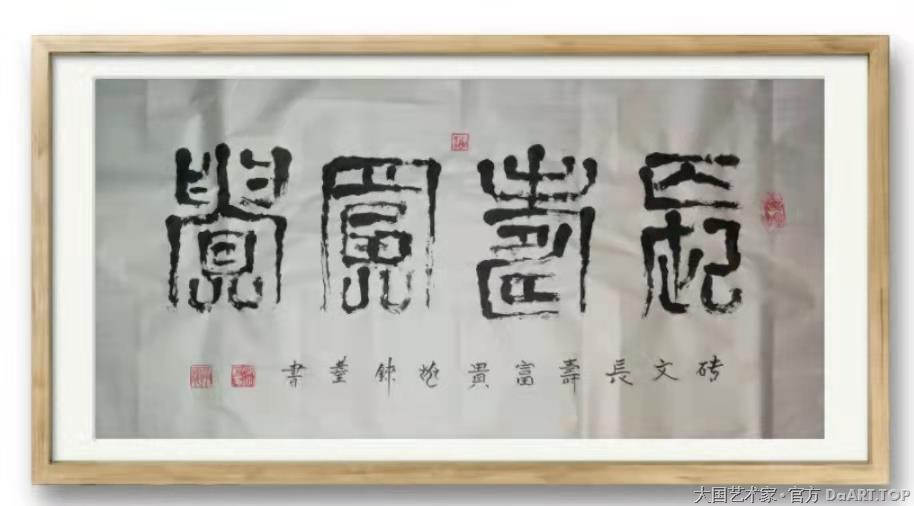 長壽富貴
砖文長壽富貴 書
大国艺术家·官方 DaART.TOP